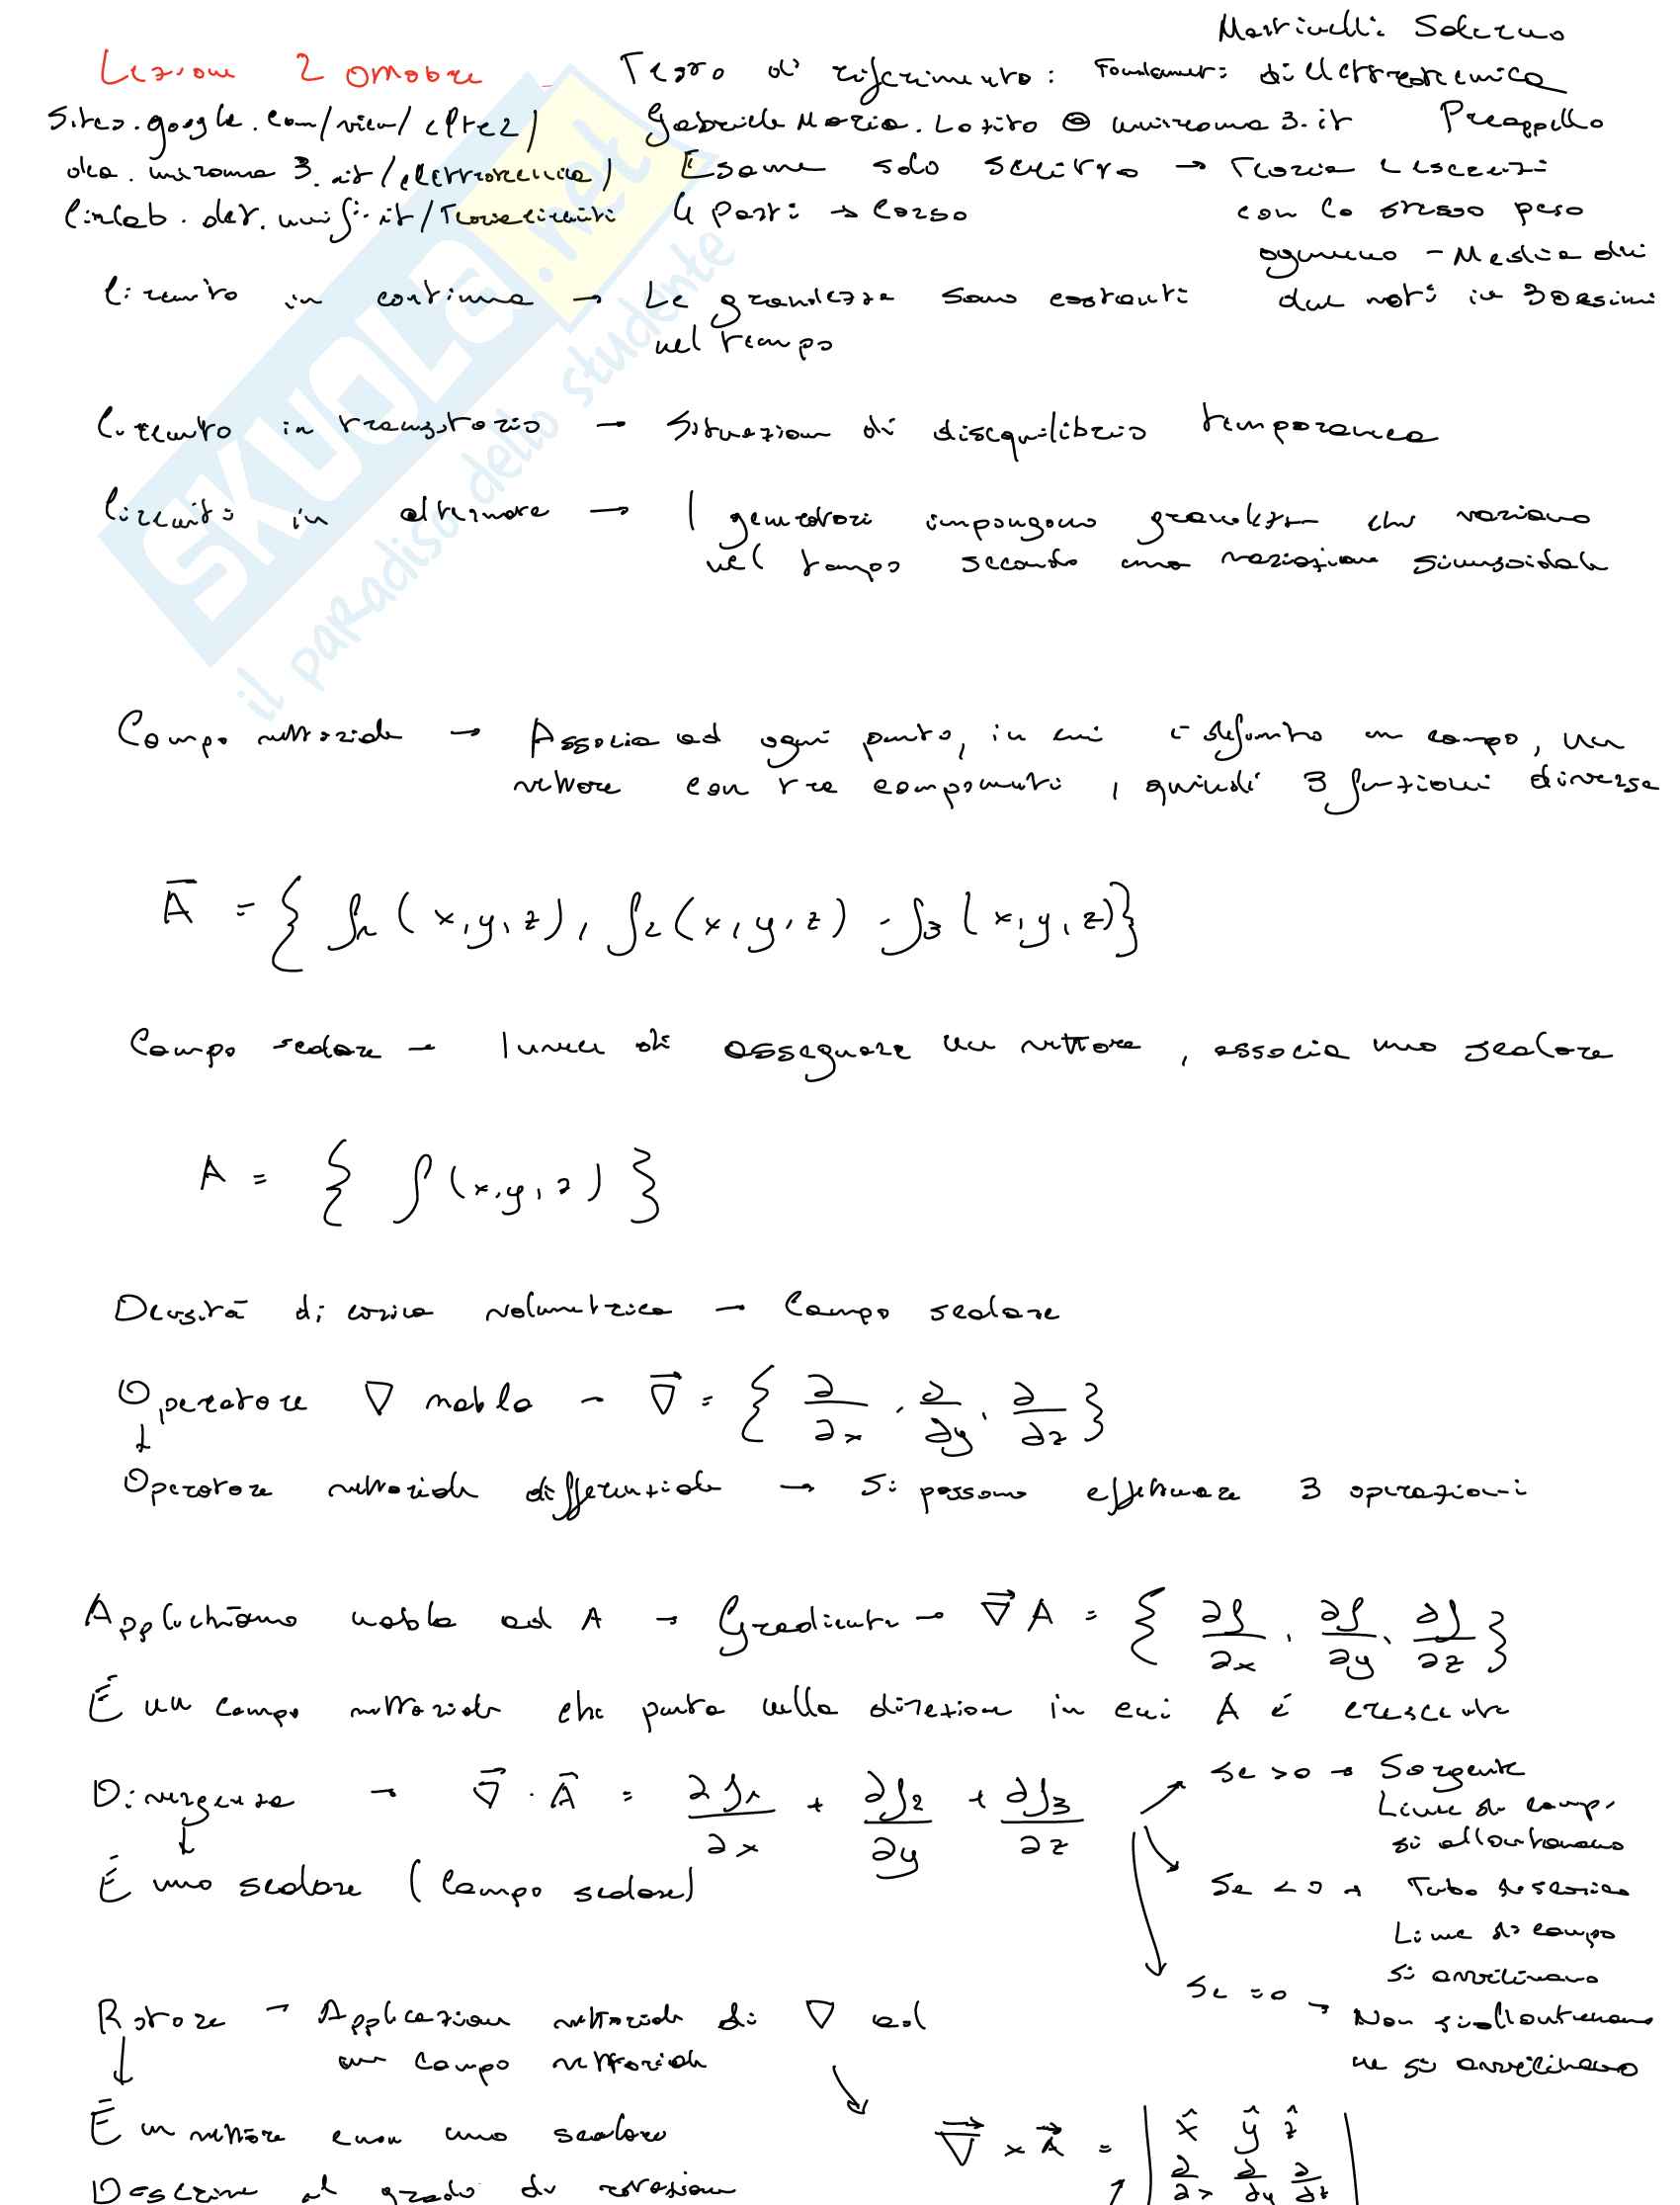 Martinelli Salerno
Lezione 2 Ottobre - Testo di riferimento: Fondamenti di Elettrotecnica
sites.google.com/view/elte2/ GabrieleMaria.Lozito @ uniroma3.it Preappello
dea.uniroma3.it/elettrotecnica/ Esame solo scritto → Teoria e esercizi
cirlab.det.unifi.it/TeoriaCircuiti 4 Parti → Corso con lo stesso peso
ognuno - Media dei
Circuito in continua → Le grandezze sono costanti due voti in 30esimi
nel tempo
Circuito in transitorio → Situazione di disequilibrio temporanea
Circuiti in alternata → I generatori impongono grandezze che variano
nel tempo secondo una variazione sinusoidale
SKUOLA.net
il paradiso dello studente
Campo vettoriale → Associa ad ogni punto, in cui è definito un campo, un
vettore con tre componenti, quindi 3 funzioni diverse
Ā = { f1 (x,y,z), f2 (x,y,z), f3 (x,y,z)}
Campo scalare → Invece di assegnare un vettore, associa uno scalare
A = { f(x,y,z) }
Densità di carica volumetrica → Campo scalare
Operatore ∇ nabla → ∇⃗ = { ∂/∂x, ∂/∂y, ∂/∂z }
↓
Operatore vettoriale differenziale → Si possono effettuare 3 operazioni
Applichiamo nabla ad A → Gradiente → ∇⃗A = { ∂f/∂x, ∂f/∂y, ∂f/∂z }
È un campo vettoriale che punta nella direzione in cui A è crescente
Divergenza → ∇⃗ · Ā = ∂f1/∂x + ∂f2/∂y + ∂f3/∂z
↓
È uno scalare (Campo scalare)
Se >0 → Sorgente
Linee di campo
si allontanano
Se <0 → Tubo di scarico
Linee di campo
si avvicinano
Se =0 → Non si allontanano
ne si avvicinano
Rotore → Applicazione vettoriale di ∇ ad
un campo vettoriale
↓
È un vettore e non uno scalare
Descrive il grado di rotazione
∇⃗ × A⃗ = | x̂ ŷ ẑ
∂/∂x ∂/∂y ∂/∂z |